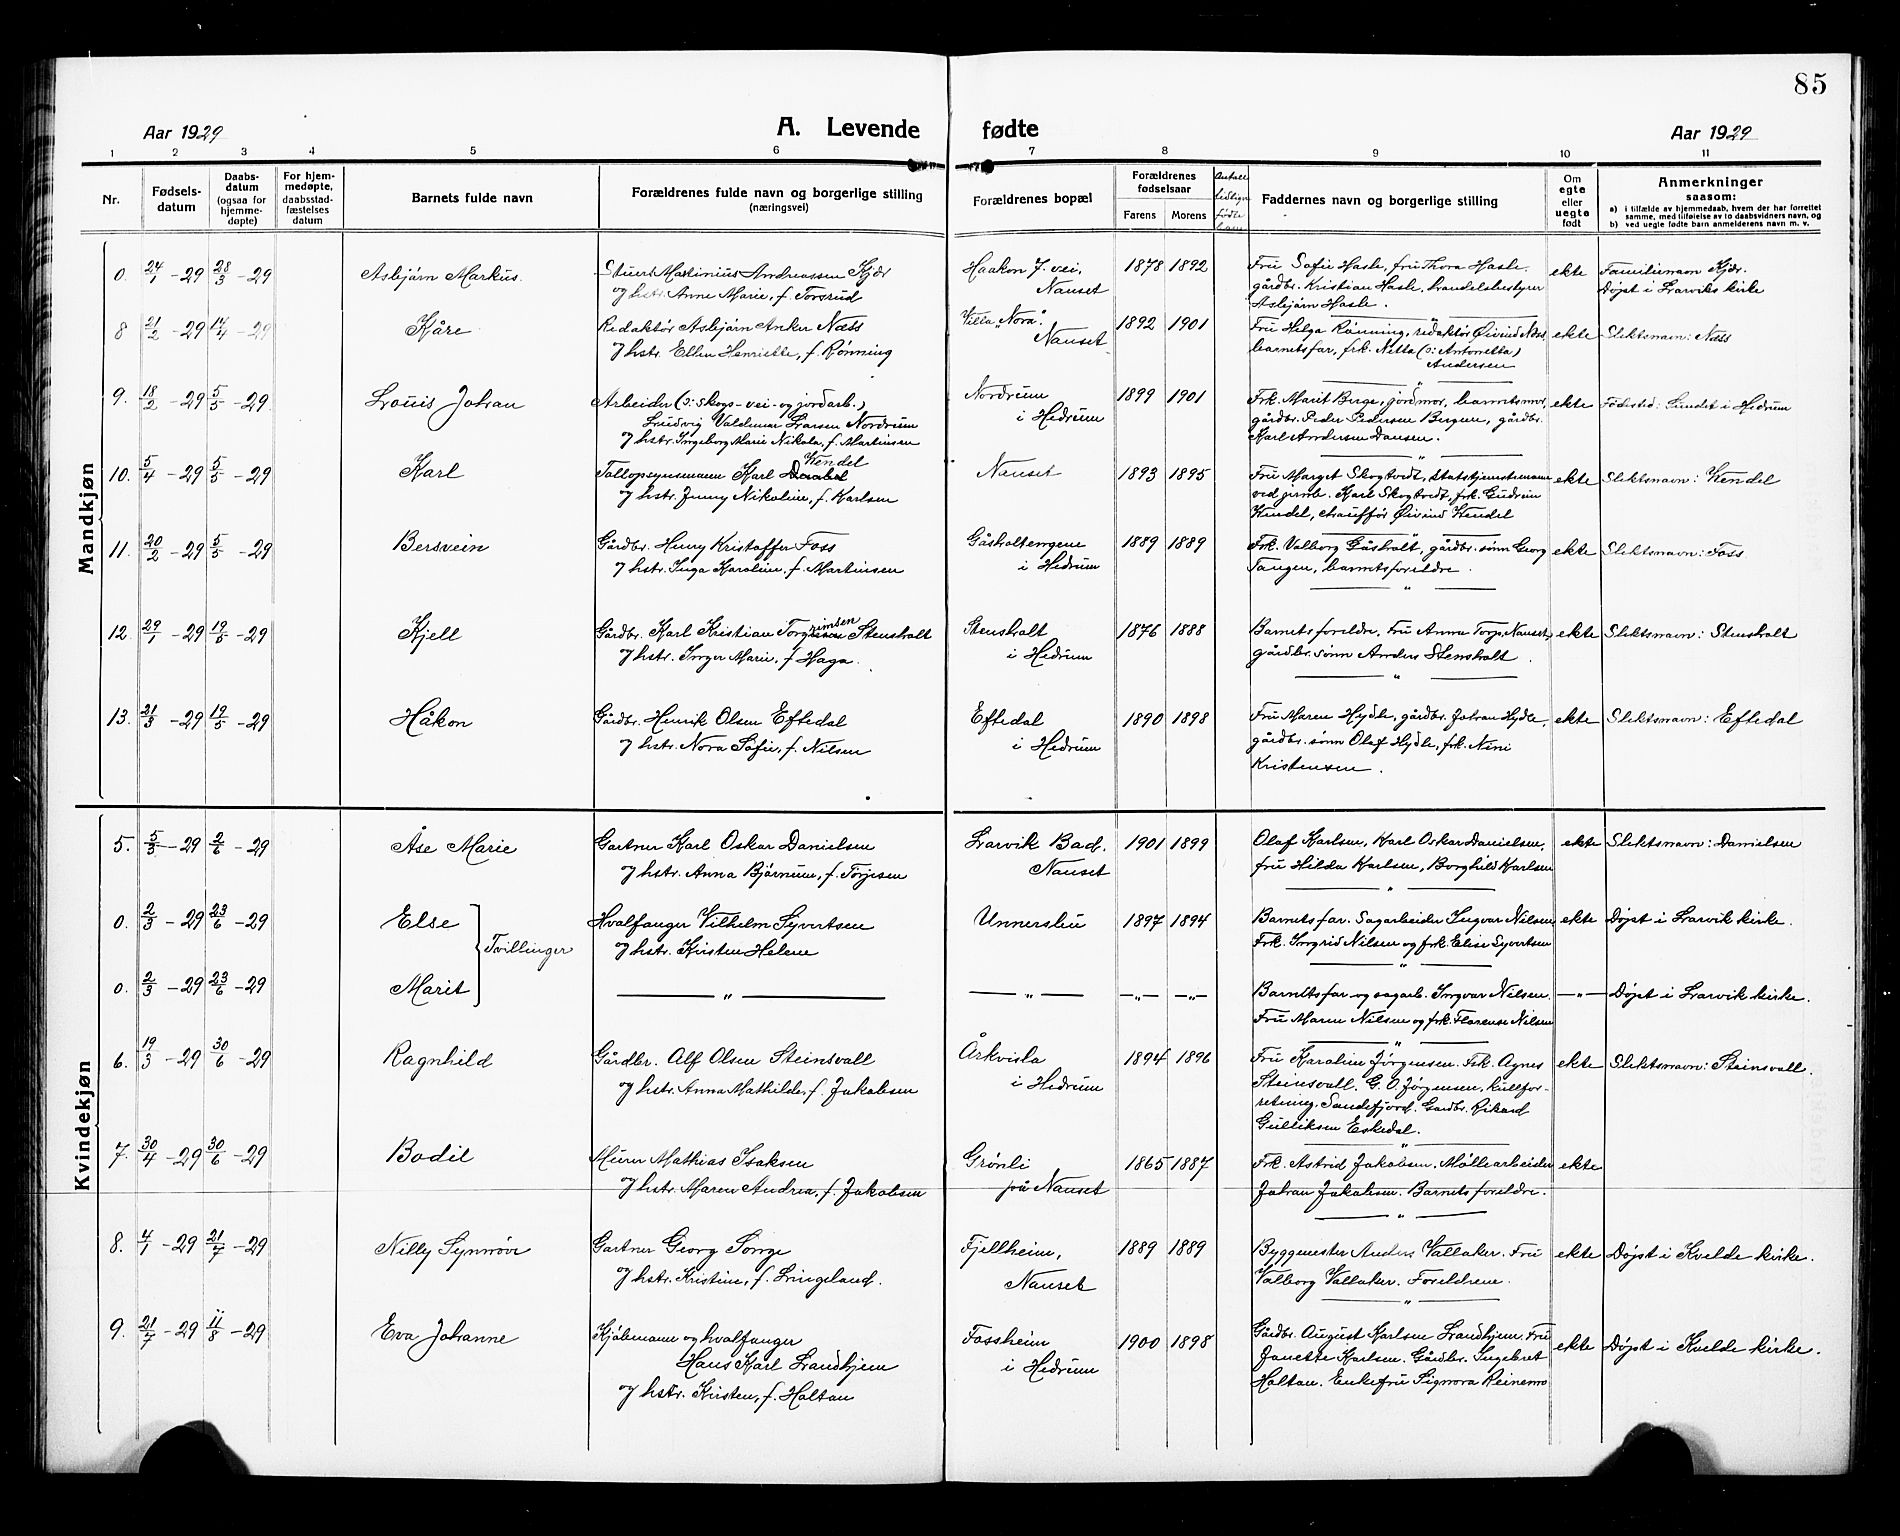 85
Aar 1929
A. Levende fødte
Aar 1929
1 2 3 4 5 6 7 8 9 10 11
Nr.
Fødselsdatum
Daabsdatum (ogsaa for hjemmedøpte)
For hjemmedøpte, daabsstadfæstelses datum
Barnets fulde navn
Forældrenes fulde navn og borgerlige stilling (næringsvei)
Forældrenes bopæl
Forældrenes fødselsaar
Farens Morens
Faddernes navn og borgerlige stilling
Om egte eller uegte født
Anmerkninger saasom:
a) i tilfælde av hjemmedaab, hvem der har forrettet samme, med tilføielse av to daabsvidners navn, og
b) ved uegte fødte barn anmelderens navn m. v.
Mandkjøn
0. 24/1 - 29 28/3 - 29 Asbjørn Markus. Stuert Martinius Andreassen Kjær Haakon 7. vei, 1878 1892 Fru Sofie Hasle, fru Thora Hasle. ekte Familienavn Kjær.
og hstr. Anne Marie, f. Torsrud Nauset gårdbr. Kristian Hasle, handelsbestyrer Døpt i Larviks kirke
Asbjørn Hasle.
8 21/2 - 29 14/4 - 29 Kåre Redaktør Asbjørn Anker Næss Villa "Nora". 1892 1901 Fru Helga Rønning, redaktør Øivind Næss ekte Slektsnavn: Næss
og hstr. Ellen Henriette, f. Rønning Nauset barnets far, frk. Netta (ɔ: Antonetta)
Andersen
9. 18/2 - 29 5/5 - 29. Louis Johan Arbeider (ɔ: skogs- vei- og jordarb.) Nordrum 1899 1901 Frk. Marit Berge, jordmor, barnets mor, ekte Fødested: Sundet i Hedrum
Ludvig Valdemar Larsen Nordrum i Hedrum gårdbr. Peder Pedersen Bergen, gårdbr.
og hstr. Ingeborg Marie Nikola, f. Martinsen Karl Andersen Dansen.
10. 5/4 - 29 5/5 - 29 Karl Tallopsynsmann Karl Kendel Nauset 1893 1895 Fru Marget Skogtvedt, statstjenestemann ekte Slektsnavn: Kendel
og hstr. Jenny Nikoline, f. Karlsen ved jernb. Karl Skogtvedt, frk. Gudrun
Kendel, chauffør Øivind Kendel
11. 20/2 - 29 5/5 - 29 Bersvein Gårdbr. Henry Kristoffer Foss Gåsholtengene 1889 1889 Frk. Valborg Gåsholt, gårdbr. sønn Georg ekte Slektsnavn: Foss.
og hstr. Inga Karoline, f. Martinsen i Hedrum Tangen, barnets foreldre.
12. 29/1 - 29 19/5 - 29 Kjell Gårdbr. Karl Kristian Torgrimsen Stensholt Stensholt 1876 1888 Barnets foreldre, Fru Anna Torp, Nauset, ekte Slektsnavn: Stensholt
og hstr. Inger Marie, f. Haga. i Hedrum gårdbr. sønn Anders Stensholt.
13. 21/3 - 29 19/5 - 29 Håkon Gårdbr. Henrik Olsen Eftedal Eftedal 1890 1898 Fru Maren Hydle, gårdbr. Johan Hydle, ekte Slektsnavn: Eftedal
og hstr. Nora Sofie, f. Nilsen i Hedrum gårdbr. sønn Olaf Hydle, frk. Nini
Kristensen.
Kvindekjøn
5. 5/3 - 29 2/6 - 29 Åse Marie Gartner Karl Oskar Danielsen Larvik Bad. 1901 1899 Olaf Karlsen, Karl Oskar Danielsen, ekte Slektsnavn: Danielsen
og hstr. Anna Bjørnum, f. Torjesen Nauset fru Hilda Karlsen, Borghild Karlsen
0. 2/3 - 29 23/6 - 29 Else Hvalfanger Vilhelm Syvertsen Unnerslid 1897 1894 Barnets far. Sagarbeider Ingvar Nilsen ekte Døpt i Larvik kirke.
Tvillinger og hstr. Kirsten Helene Frk. Ingrid Nilsen og frk. Elise Syvertsen
0. 2/3 - 29 23/6 - 29 Marit — " — — " — — " — — " — Barnets far og sagarb. Ingvar Nilsen. — " — Døpt i Larvik kirke.
Fru Maren Nilsen og frk. Florense Nilsen
6. 19/3 - 29 30/6 - 29 Ragnhild Gårdbr. Alf Olsen Steinsvall Årkvisla 1894 1896 Fru Karoline Jørgensen. Frk. Agnes ekte Slektsnavn: Steinsvall.
og hstr. Anna Mathilde, f. Jakobsen i Hedrum Steinsvall. G. O. Jørgensen, kullfor-
retning, Sandefjord. Gardbr. Rikard
Gulliksen Eskedal.
7. 30/4 - 29 30/6 - 29 Bodil Murer Mathias Isaksen Grønli 1865 1887 Frk. Astrid Jakobsen. Møllearbeider ekte
og hstr. Maren Andrea, f. Jakobsen på Nauset Johan Jakobsen. Barnets foreldre.
8. 4/1 - 29 21/7 - 29 Nilly Synnøve Gartner Georg Sorge Fjellheim, 1889 1889 Byggmester Anders Vallaker. Fru ekte Døpt i Kvelde kirke.
og hstr. Kristine, f. Lingeland. Nauset Valborg Vallaker. Foreldrene.
9. 21/7 - 29 11/8 - 29 Eva Johanne Kjølemann og hvalfanger Fossheim 1900 1898 Gårdbr. August Karlsen Brandhjem. Fru ekte Døpt i Kvelde kirke.
Hans Karl Brandhjem i Hedrum Janette Karlsen. Gårdbr. Ingebret
og hstr. Kirsten, f. Holtan Holtan. Enkefru Signora Reinemo